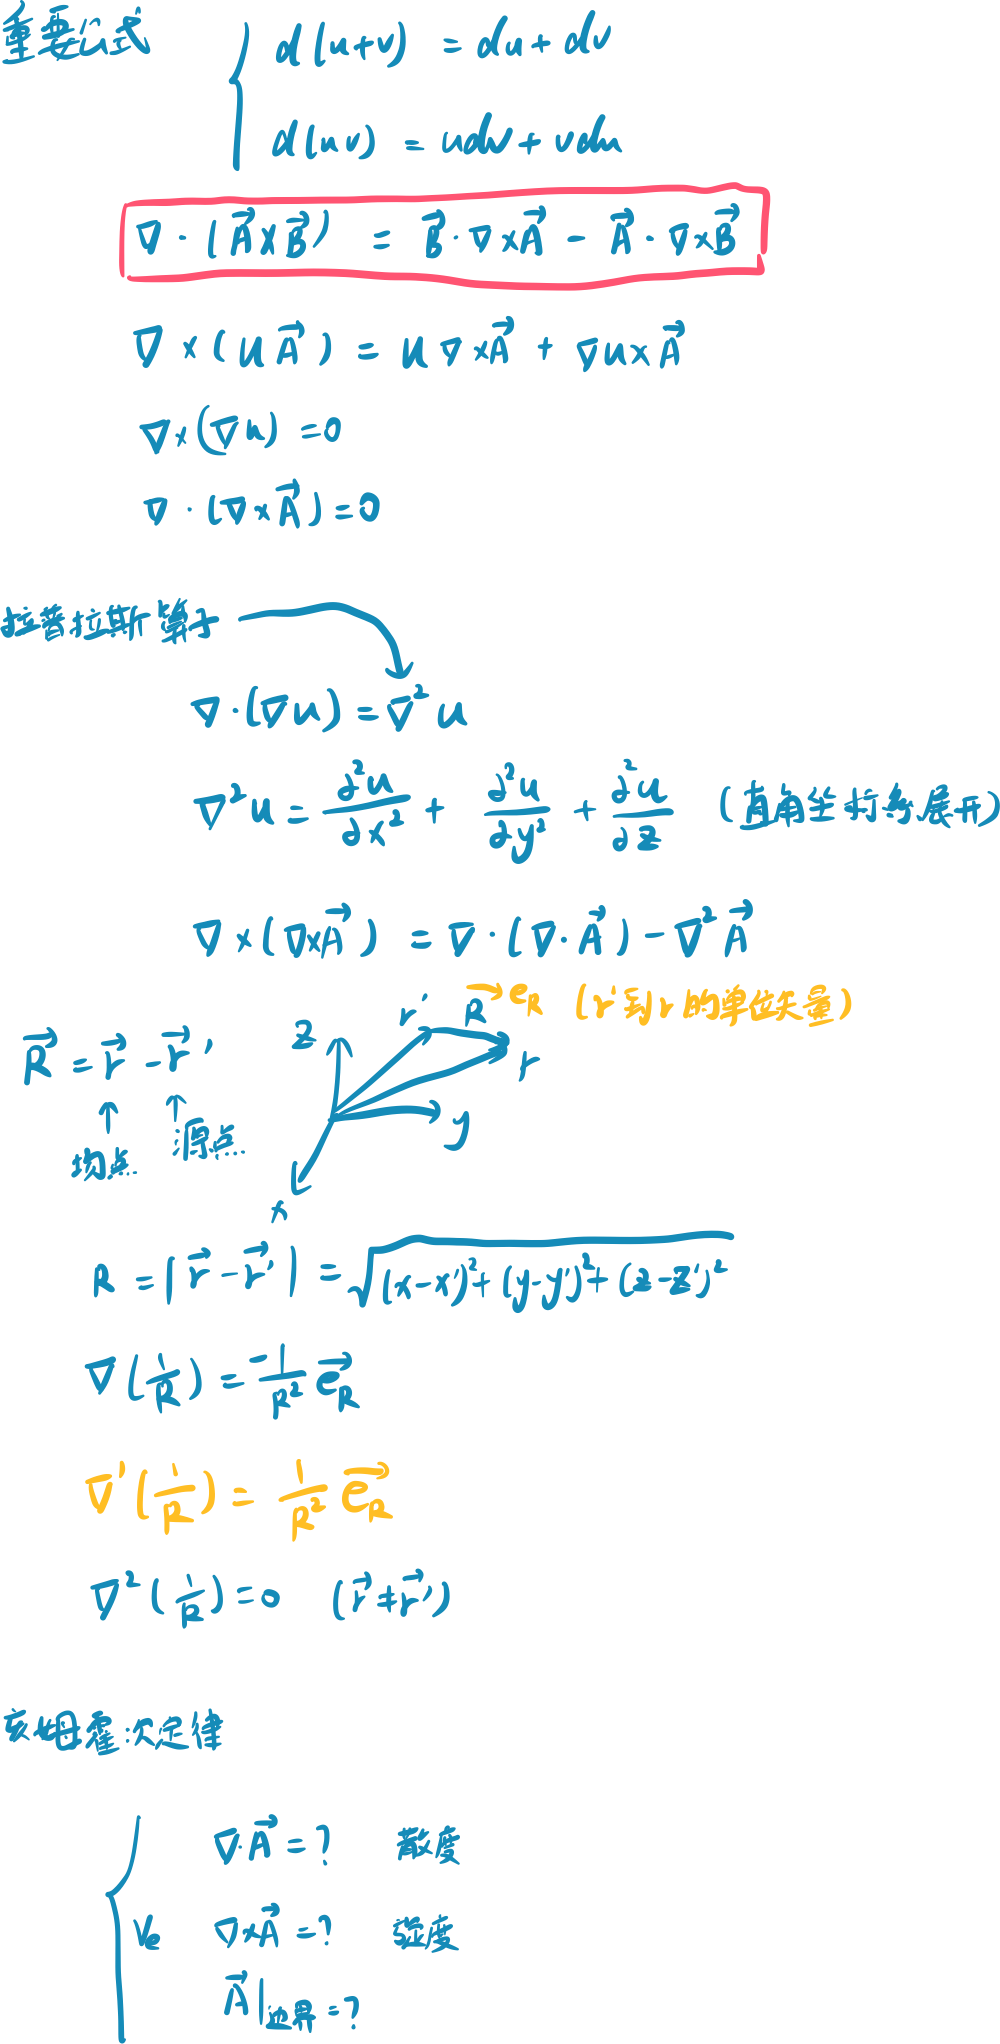 重要公式
d(u+v) = du + dv
d(uv) = udv + vdu
∇·(A⃗×B⃗) = B⃗·∇×A⃗ - A⃗·∇×B⃗
∇×(uA⃗) = u∇×A⃗ + ∇u×A⃗
∇×(∇u) = 0
∇·(∇×A⃗) = 0
拉普拉斯算子
∇·(∇u) = ∇²u
∇²u = ∂²u/∂x² + ∂²u/∂y² + ∂²u/∂z (直角坐标系展开)
∇×(∇×A⃗) = ∇·(∇·A⃗) - ∇²A⃗
e_R (r'到r的单位矢量)
R⃗ = r⃗ - r⃗'
z r' R r y x
场点 源点
R = |r⃗ - r⃗'| = √((x-x')² + (y-y')² + (z-z')²)
∇(1/R) = -1/R² e⃗_R
∇'(1/R) = 1/R² e⃗_R
∇²(1/R) = 0 (r⃗ ≠ r⃗')
亥姆霍次定律
∇·A⃗ = ? 散度
∇×A⃗ = ? 旋度
A⃗|边界 = ?